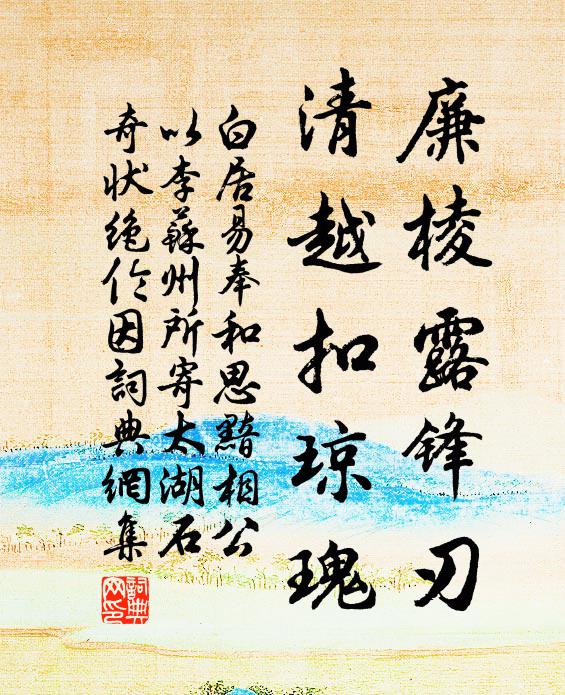 廉棱露鋒刃
清越扣瓊瑰
白居易奉和思黯相公
以李蘇州所寄太湖石
奇状绝伦因詞典網集
詞典